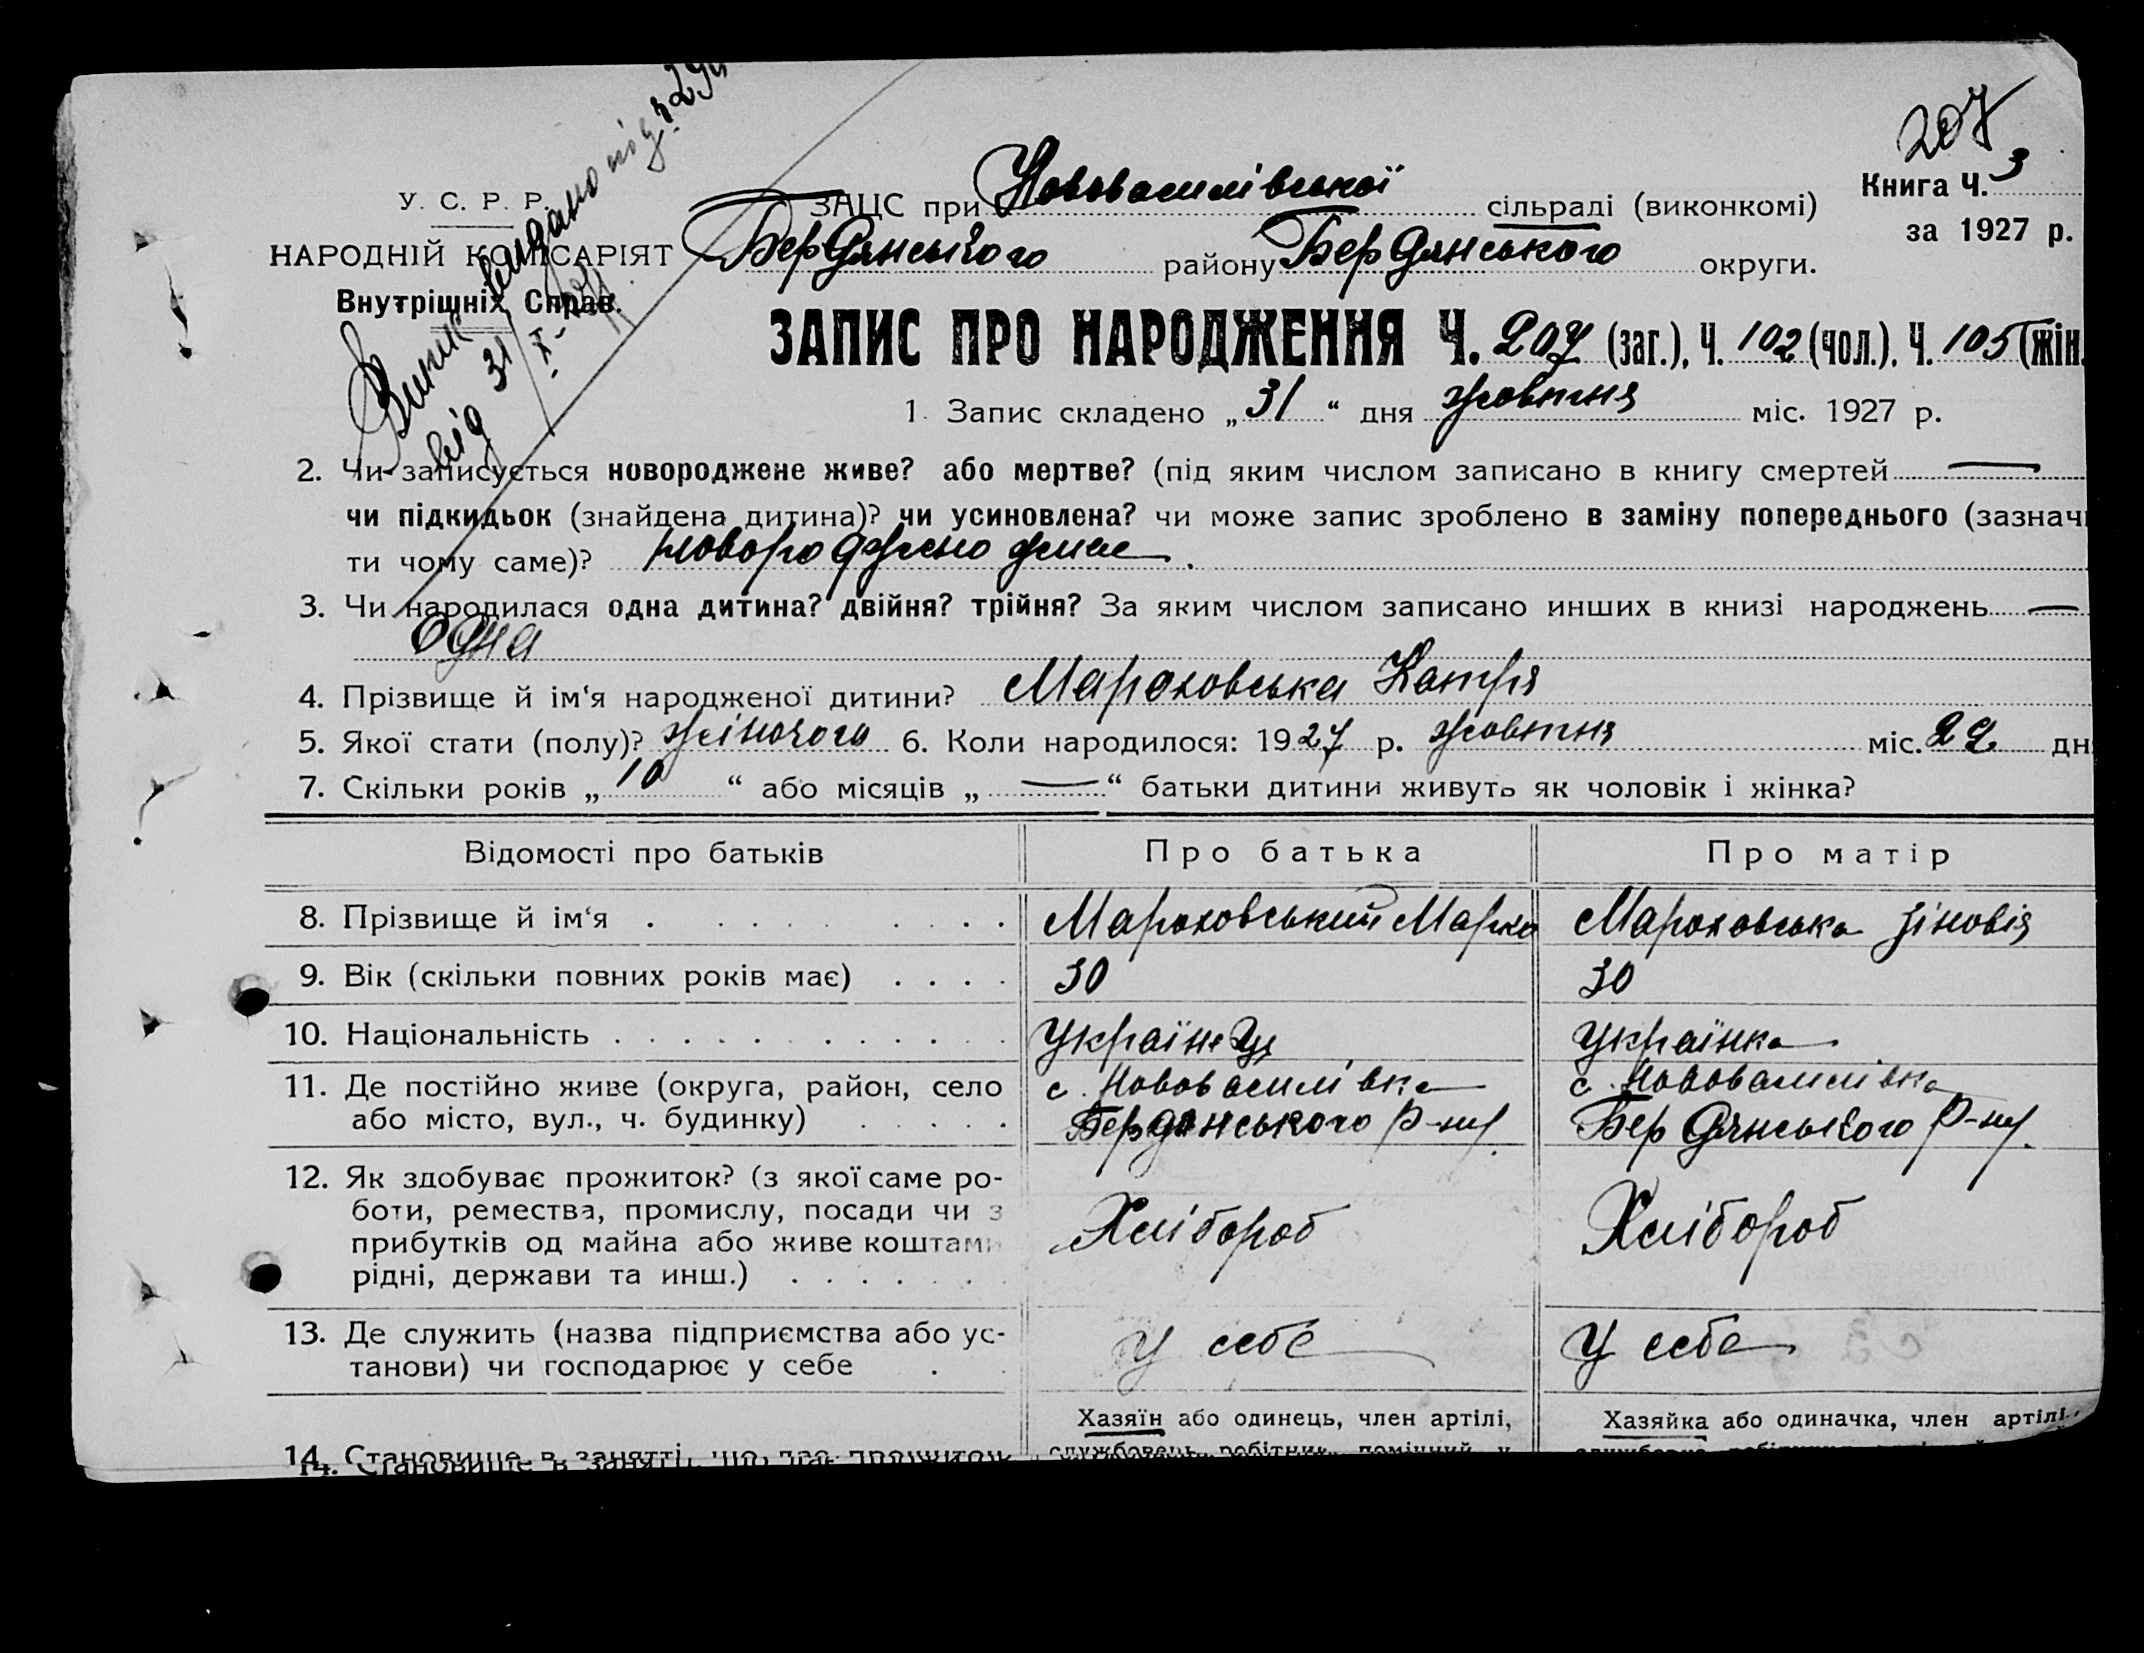 207
У. С. Р. Р.
НАРОДНІЙ КОМІСАРІЯТ
Внутрішніх Справ.
від 31/X-
ЗАЦС при Нововасилівської сільраді (виконкомі)
Книга Ч. 3
за 1927 р.
Бердянського району Бердянського округи.
ЗАПИС ПРО НАРОДЖЕННЯ Ч. 207 (заг.), Ч. 102 (чол.), Ч. 105 (жін.
1. Запис складено „31“ дня жовтня міс. 1927 р.
2. Чи записується новороджене живе? або мертве? (під яким числом записано в книгу смертей —
чи підкидьок (знайдена дитина)? чи усиновлена? чи може запис зроблено в заміну попереднього (зазначи
ти чому саме)? новороджено живе.
3. Чи народилася одна дитина? двійня? трійня? За яким числом записано инших в книзі народжень —
одна
4. Прізвище й ім‘я народженої дитини? Мароховська Катря
5. Якої стати (полу)? жіночого 6. Коли народилося: 1927 р. жовтня міс. 29 дн
7. Скільки років „10“ або місяців „—“ батьки дитини живуть як чоловік і жінка?
Відомості про батьків Про батька Про матір
8. Прізвище й ім‘я . . . . . . . . Мароховський Марко Мароховська Зіновія
9. Вік (скільки повних років має) . . . . 30 30
10. Національність . . . . . . . . . . . українець українка
11. Де постійно живе (округа, район, село с. Нововасилівка с. Нововасилівка
або місто, вул., ч. будинку) . . . . . Бердянського р-ну. Бердянського р-ну.
12. Як здобуває прожиток? (з якої саме ро-
боти, ремества, промислу, посади чи з Хлібороб Хлібороб
прибутків од майна або живе коштами
рідні, держави та инш.) . . . . . . .
13. Де служить (назва підприємства або ус- у себе у себе
танови) чи господарює у себе . .
Хазяїн або одинець, член артілі, Хазяйка або одиначка, член артілі,
14. Становище в занятті, що дає прожиток службовець, робітник, помічний у